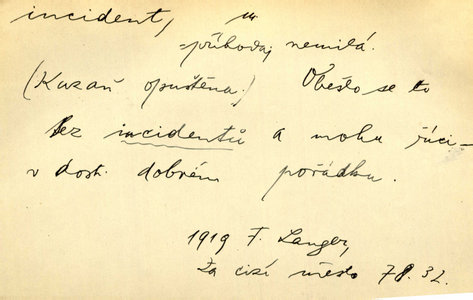 incident, m
= příhoda, nemilá.
(Kazaň opuštěna.) Obešlo se to
bez incidentů a mohu říci –
v dost. dobrém pořádku.
1919 F. Langer,
Za cizí město 78. 32.